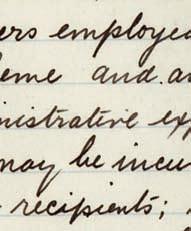 ers employed
eme and a
nistrative ex
may be incu
recipients;